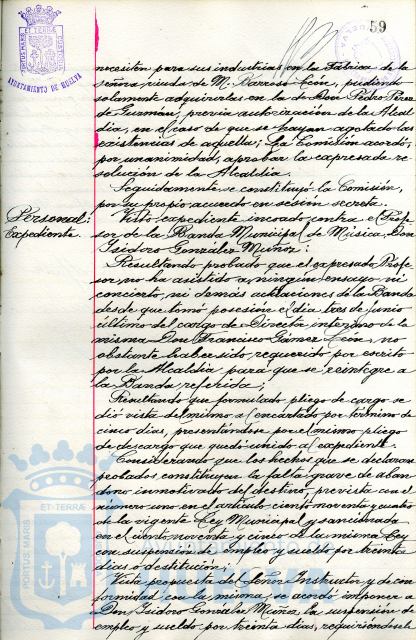 59
PORTUS MARIS ET TERRÆ CUSTODIA
AYUNTAMIENTO DE HUELVA
necesiten para sus industrias en la Fábrica de la
señora viuda de M. Barroso León, pudiendo
solamente adquirirlas en la de Don Pedro Pérez
de Guzmán, previa autorización de la Alcal
día, en el caso de que se hayan agotado las
existencias de aquella; La Comisión acordó,
por unanimidad, aprobar la expresada re
solución de la Alcaldía.
Seguidamente se constituyó la Comisión,
por su propio acuerdo en sesión secreta.
Personal:
Expediente.
Visto expediente incoado contra el Profe
sor de la Banda Municipal de Música, Don
Isidoro González Muñoz:
Resultando probado que el expresado Profe
sor, no ha asistido a ningún ensayo ni
concierto, ni demás actuaciones de la Banda
desde que tomó posesión el día tres de junio
último del cargo de Director interino de la
misma Don Francisco Gámez León, no
obstante haber sido requerido por escrito
por la Alcaldía para que se reintegre a
la Banda referida;
Resultando que formulado pliego de cargo se
dió vista del mismo al encartado por término de
cinco días, presentándose por el mismo pliego
de descargo que quedó unido al expediente.
Considerando que los hechos que se declaran
probados constituyen la falta grave de aban
dono inmotivado del destino, prevista con el
número uno en el artículo ciento noventa y cuatro
de la vigente Ley Municipal y sancionada
en el ciento noventa y cinco de la misma Ley
con suspensión de empleo y sueldo por treinta
días o destitución;
Vista propuesta del Señor Instructor y de con
formidad con la misma, se acordó imponer a
Don Isidoro González Muñoz la suspensión de
empleo y sueldo por treinta días, requiriéndosele
PORTUS MARIS ET TERRÆ